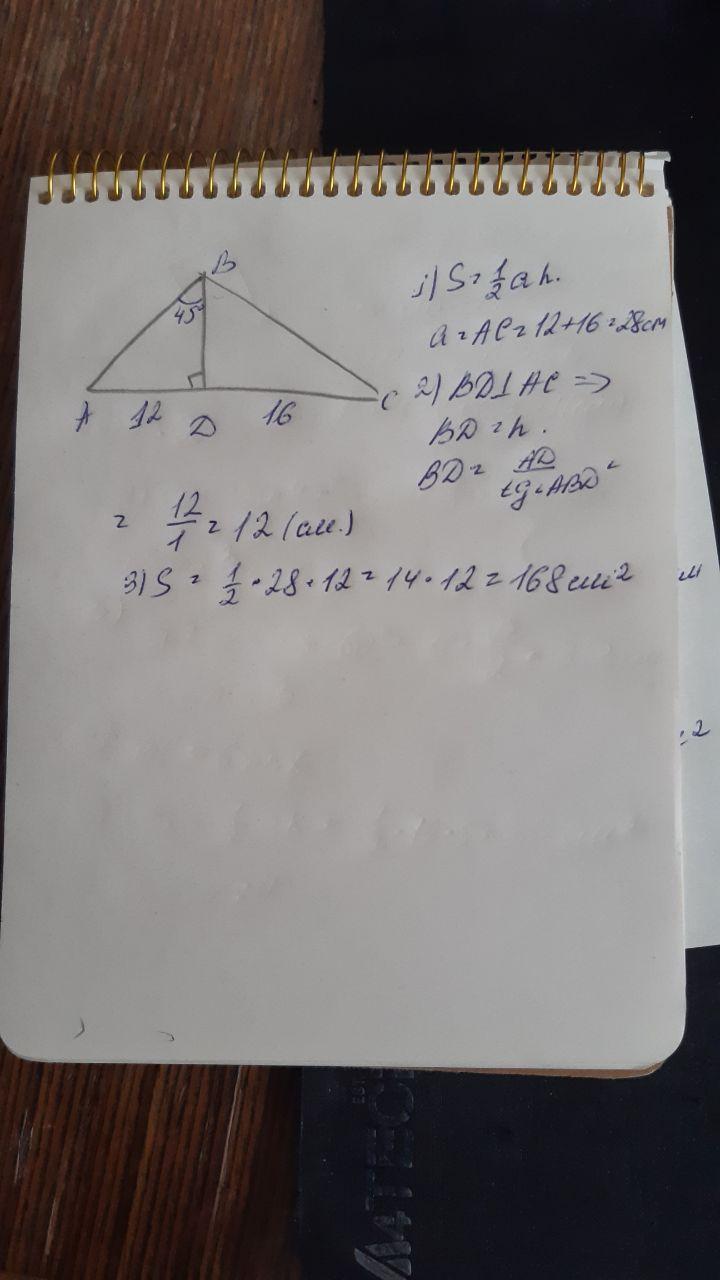 B
45°
A 12 D 16 C
1) S = 1/2 a h.
a = AC = 12+16 = 28 см
2) BD ⊥ AC =>
BD = h.
BD = AD / tg∠ABD =
= 12/1 = 12 (см.)
3) S = 1/2 · 28 · 12 = 14 · 12 = 168 см²
м
2
A4TEC